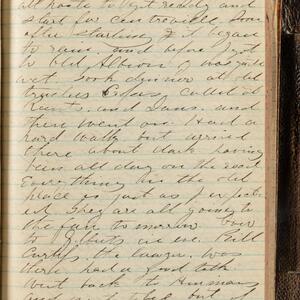 all hands to get ready and
start for Centreville. Soon
after starting it began
to rain, and before I got
to Old Albion I was quite
wet. Took dinner at old
Called at
Hunts. and Dans. and
then went on. Had a
hard walk but arrived
there about dark having
been all day on the road
Everything in the old
place is just as perfect
ed. They are all going to
the fair to morrow. Over
to Gilberts in eve. Bill
Curtis, the lawyer, was
there. had a good talk
went back to Hinmans
and